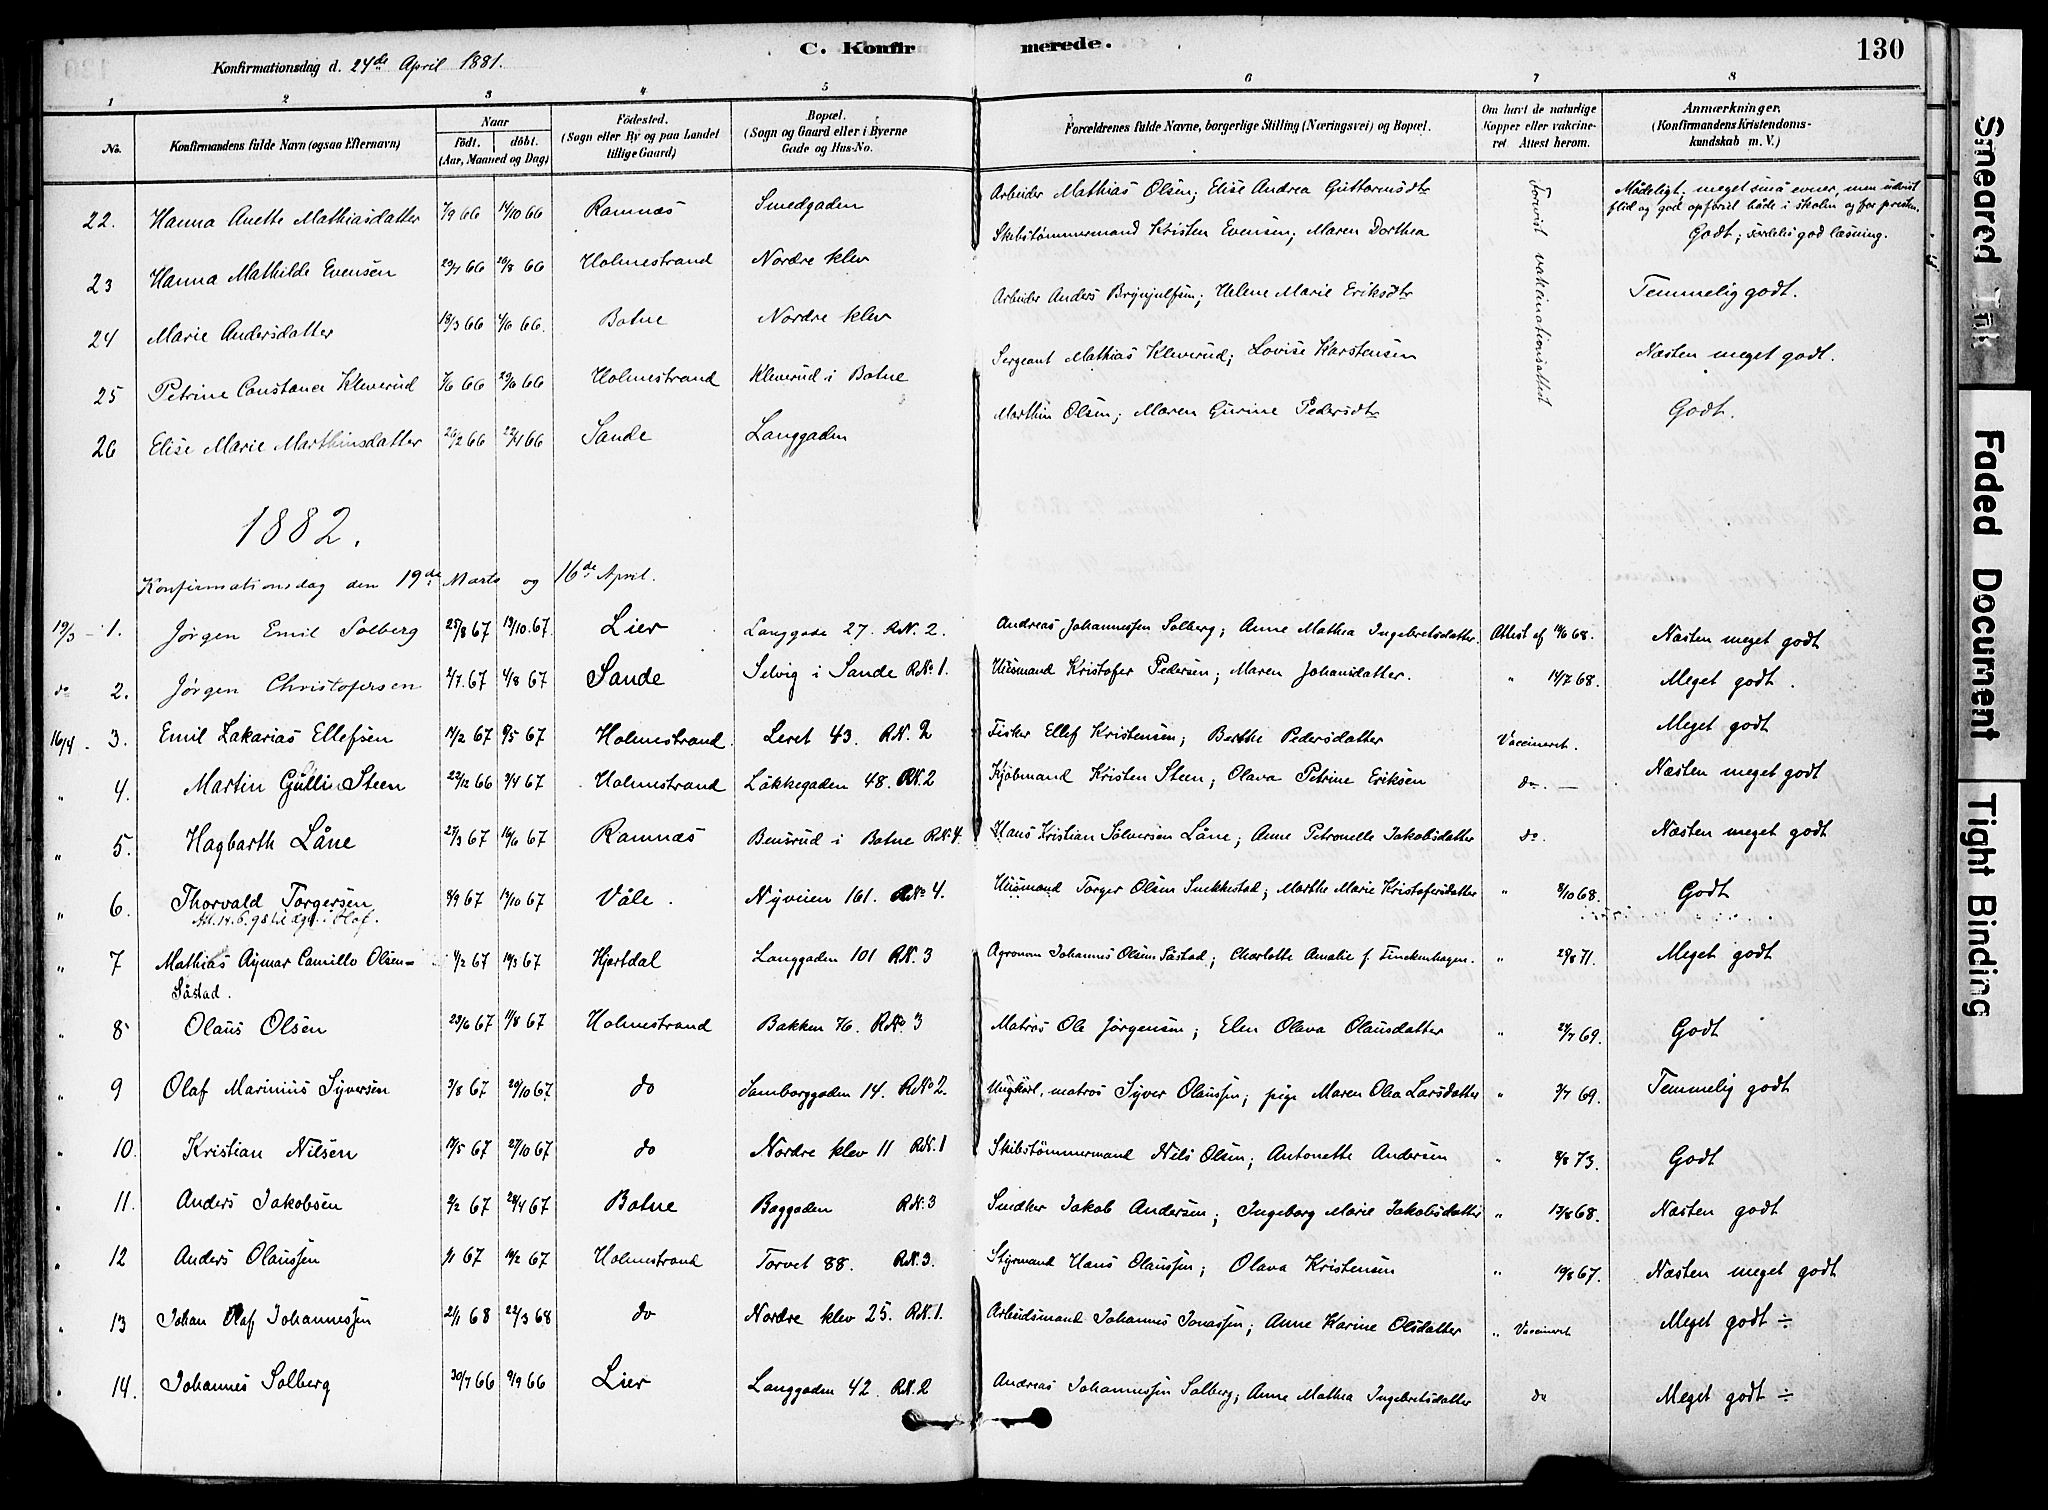 C. Konfirmerede.
130
Konfirmationsdag d. 24de April 1881.
1 2 3 4 5 6 7 8
No. Konfirmandens fulde Navn (ogsaa Efternavn) Naar födt. döbt. (Aar, Maaned og Dag) Födested. (Sogn eller By og paa Landet tillige Gaard) Bopæl. (Sogn og Gaard eller i Byerne Gade og Hus-No. Forældrenes fulde Navne, borgerlige Stilling (Næringsvei) og Bopæl. Om havt de naturlige Kopper eller vakcineret. Attest herom. Anmærkninger. (Konfirmandens Kristendomskundskab m. V.)
22. Hanna Anette Mathiasdatter 1/9 66 14/10 66 Ramnæs Smedgaden Arbeider Mathias Olsen; Elise Andrea Guttormsdtr Forevist vakcinationsattest Mådeligt; meget små evner, men udvist flid og god opførsel både i skolen og for presten.
23 Hanna Mathilde Evensen 29/7 66 26/8 66 Holmestrand Nordre klev Skibstømmermand Kristen Evensen; Maren Dorthea Godt; særdeles god læsning.
24 Marie Andersdatter 18/3 66 4/6 66. Botne Nordre klev Arbeider Anders Brynjulfsen; Helene Marie Eriksdtr Temmelig godt.
25 Petrine Constance Kleverud 1/6 66 29/6 66 Holmestrand Kleverud i Botne Sergeant Mathias Kleverud; Lovise Karstensen Næsten meget godt.
26 Elise Marie Marthinsdatter 26/2 66 22/4 66 Sande Langgaden Marthin Olsen; Maren Gurine Pedersdtr Godt.
1882.
Konfirmationsdag den 19de Marts og 16de April.
19/3 - 1. Jørgen Emil Solberg 25/8 67 13/10.67. Lier Langgade 27. RN. 2. Andreas Johannessen Solberg; Anne Mathea Ingebretsdatter Attest af 14/6 68. Næsten meget godt
do 2. Jørgen Christofersen 2/7. 67 4/8 67 Sande Selvig i Sande RNo 1. Husmand Kristofer Pedersen; Maren Johansdatter. " 14/7 68. Meget godt.
16/4 - 3. Emil Zakarias Ellefsen 14/2 67 9/5 67 Holmestrand. Leret 43. RN. 2 Fisker Ellef Kristensen; Berthe Pedersdatter Vaccineret. Meget godt
" 4. Martin Gullik Steen 22/12 66 3/4 67 Holmestrand Løkkegaden 48. RN. 2 Kjøbmand Kristen Steen; Olava Petrine Eriksen do. — Næsten meget godt
" 5. Hagbarth Låne 27/3 67 16/6 67 Ramnæs Bensrud i Botne RN. 4. Hans Kristian Sølversen Låne; Anne Petronelle Jakobsdatter do. Næsten meget godt
" 6. Thorvald Torgersen 8/9 67 13/10 67 Våle. Nyveien 161. RNo 4. Husmand Torger Olsen Snekkestad; Marthe Marie Kristofersdatter " 8/10 68. Godt
Att. 14.6.98
" 7 Mathias Aymar Camillo Olsen- 1/2 67 14/3 67 Hjertdal Langgaden 101 RN. 3 Agronom Johannes Olsen Såstad; Charlotte Amalie f. Finckenhagen. " 29/8 71. Meget godt
Såstad.
" 8 Olaus Olsen 23/6 67 11/8 67 Holmestrand Bakken 76. RNo 3 Matros Ole Jørgensen; Elen Olava Olausdatter " 24/7 69. Godt
" 9 Olaf Marinius Syversen 3/8 67 20/10 67. do Samborggaden 14. RNo 2. Ungkarl, matros Syver Olaussen; pige Maren Olea Larsdatter " 3/7 69. Temmelig godt
" 10. Kristian Nilsen 19/5 67 27/10 67 do Nordre klev 11 RN. 1 Skibstømmermand Nils Olsen; Antonette Andersen " 8/8 73. Godt
" 11. Anders Jakobsen 2/2 67 28/4 67 Botne Baggaden RN. 3 Snedker Jakob Andersen; Ingeborg Marie Jakobsdatter " 13/8 68. Næsten godt
" 12 Anders Olaussen 1/1 67 14/2 67 Holmestrand Torvet 88. RN. 3. Styrmand Hans Olaussen; Olava Kristensen " 19/8 67. Næsten meget godt
" 13 Johan Olaf Johannessen 21/1 68 22/3 68 do Nordre klev 25. RN. 1. Arbeidsmand Johannes Jonassen; Anne Karine Olsdatter " Vaccineret Meget godt ÷
" 14. Johannes Solberg 30/7 66 9/9 66 Lier Langgaden 42. RN. 2 Andreas Johannessen Solberg; Anne Mathea Ingebretsdatter do Meget godt ÷
Smeared Ink
Faded Document
Tight Binding